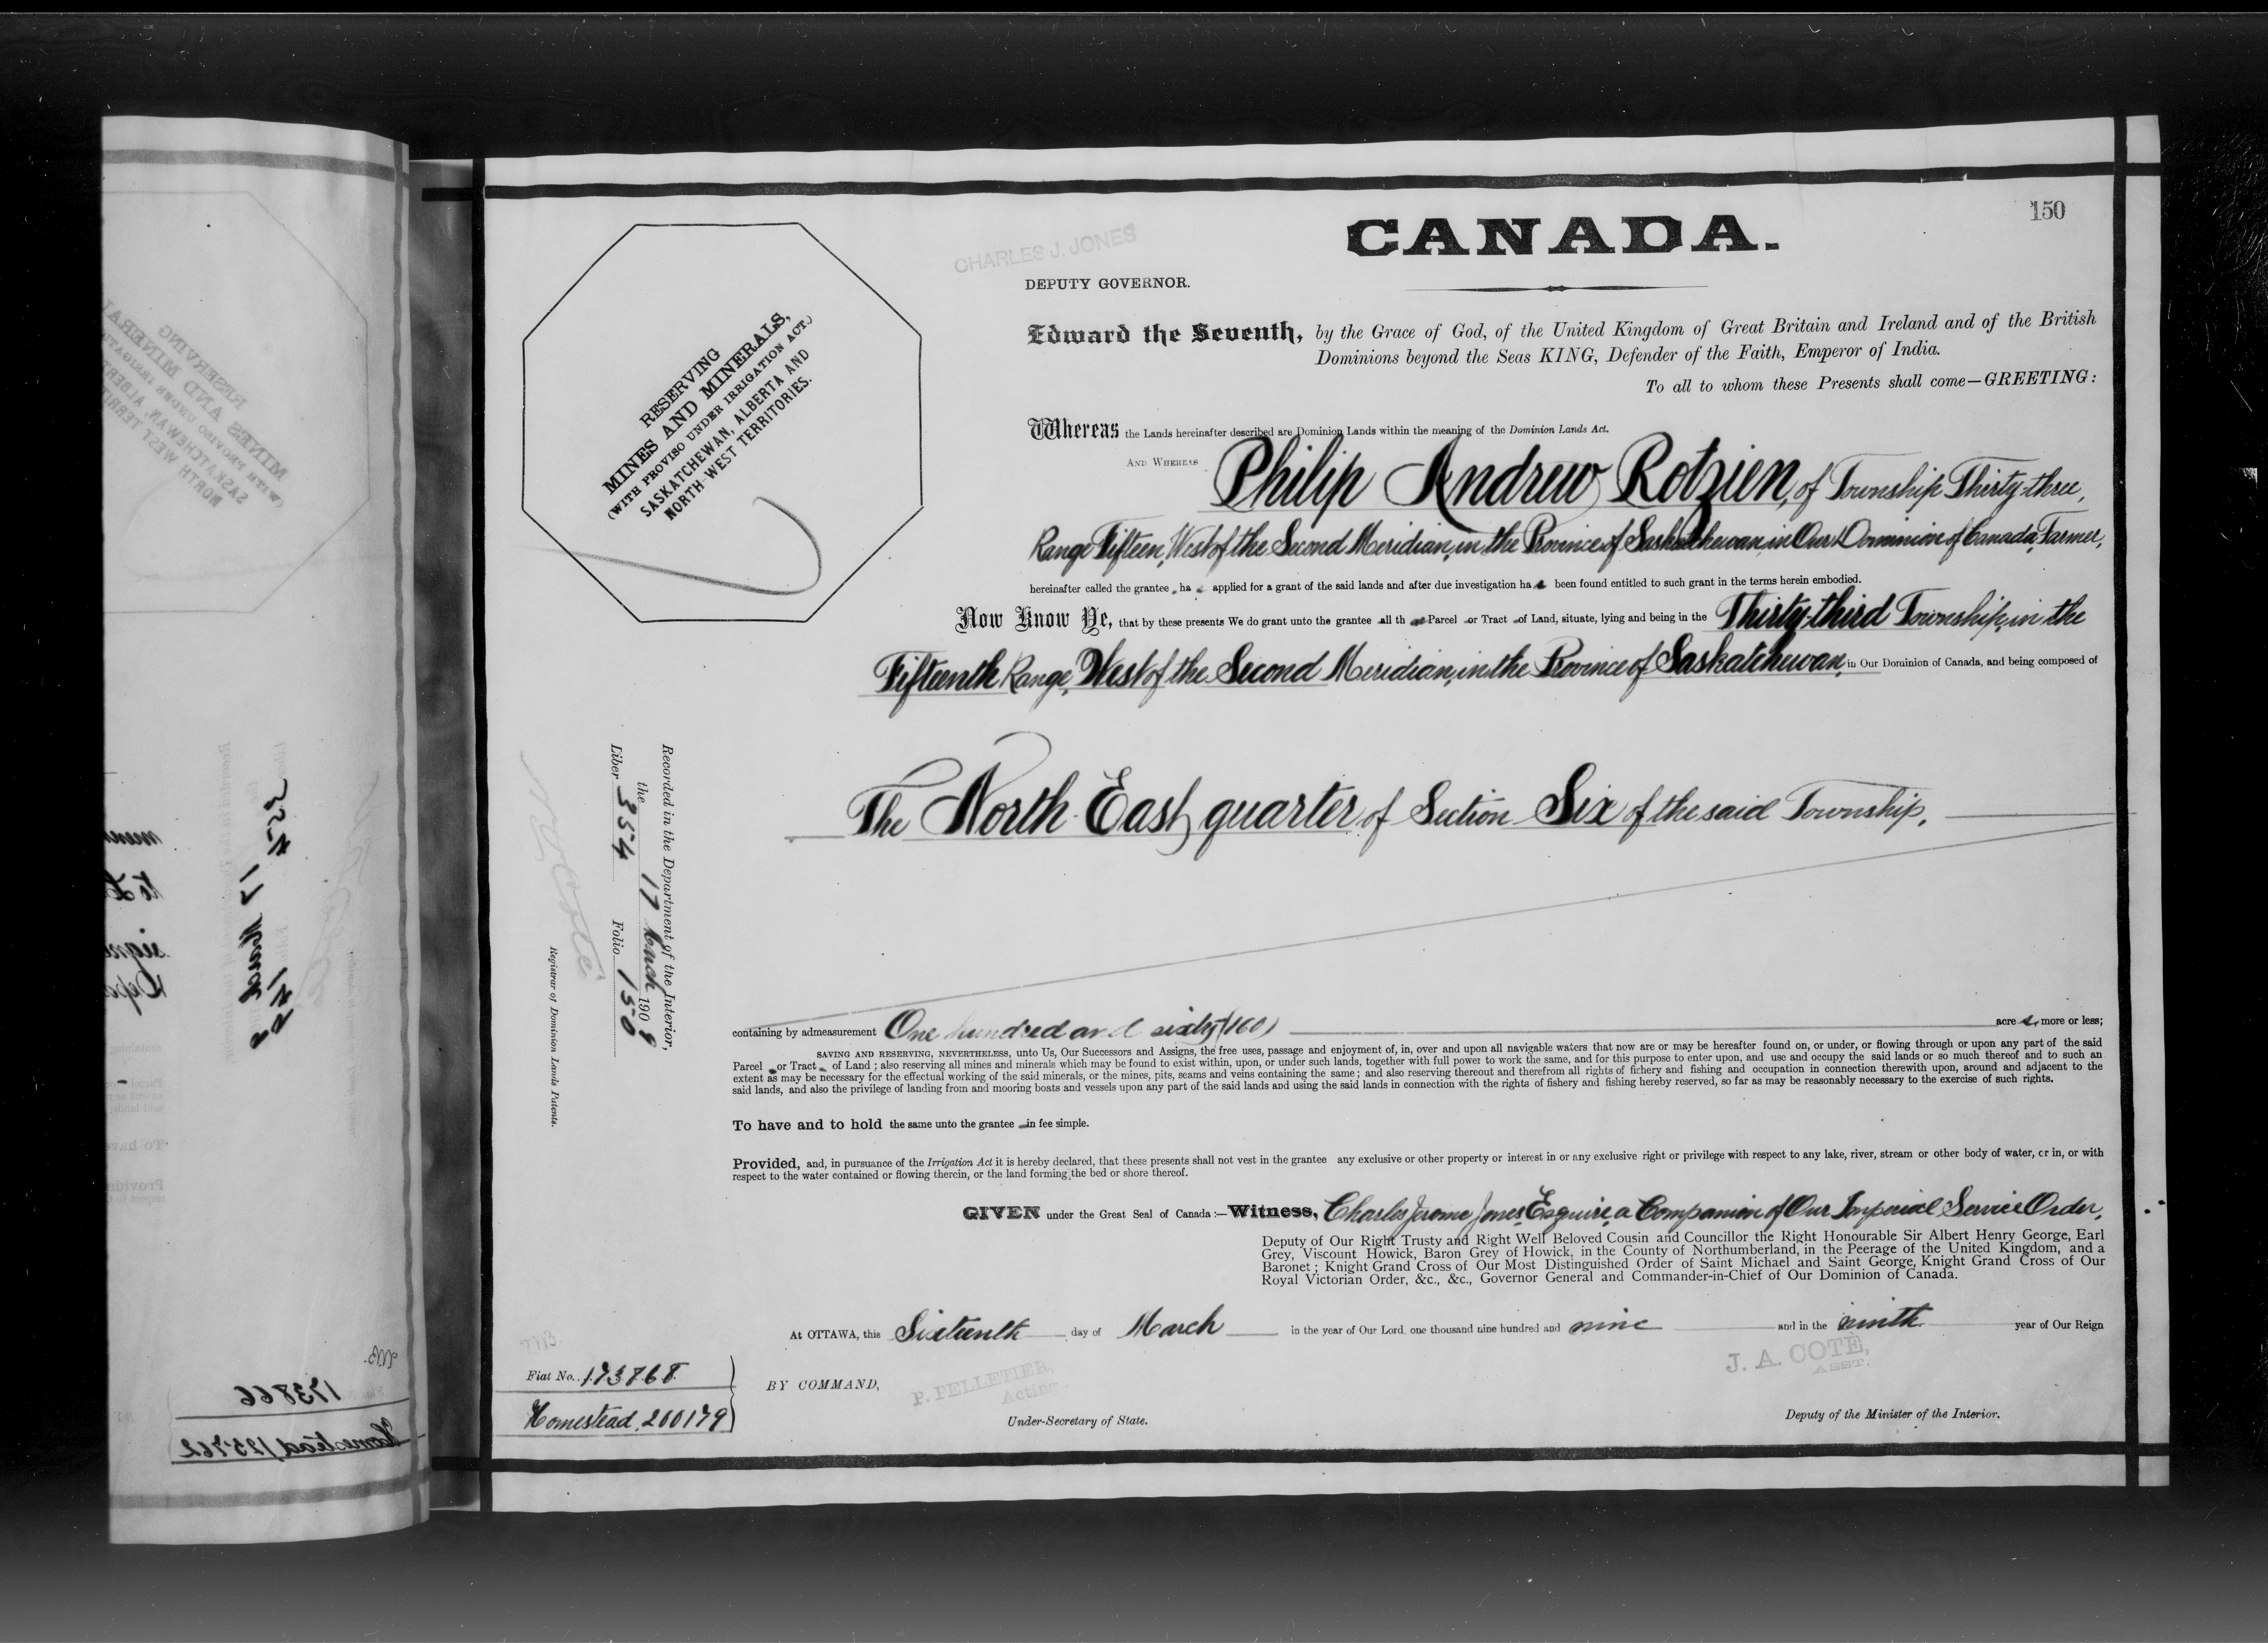 150
CANADA.
CHARLES J. JONES
DEPUTY GOVERNOR.
RESERVING
MINES AND MINERALS,
(WITH PROVISO UNDER IRRIGATION ACT.)
SASKATCHEWAN, ALBERTA AND
NORTH-WEST TERRITORIES.
Edward the Seventh, by the Grace of God, of the United Kingdom of Great Britain and Ireland and of the British
Dominions beyond the Seas KING, Defender of the Faith, Emperor of India.
To all to whom these Presents shall come—GREETING:
Whereas the Lands hereinafter described are Dominion Lands within the meaning of the Dominion Lands Act.
AND WHEREAS Philip Andrew Rotzien, of Township Thirty-three,
Range Fifteen, West of the Second Meridian, in the Province of Saskatchewan, in Our Dominion of Canada, Farmer,
hereinafter called the grantee, has applied for a grant of the said lands and after due investigation has been found entitled to such grant in the terms herein embodied.
Now Know Ye, that by these presents We do grant unto the grantee all that Parcel or Tract of Land, situate, lying and being in the Thirty-third Township, in the
Fifteenth Range, West of the Second Meridian, in the Province of Saskatchewan, in Our Dominion of Canada, and being composed of
The North East quarter of Section Six of the said Township.
Recorded in the Department of the Interior,
the 17 March 1909
Liber 354 Folio 150
Registrar of Dominion Lands Patents.
containing by admeasurement One hundred and sixty (160) acres, more or less;
SAVING AND RESERVING, NEVERTHELESS, unto Us, Our Successors and Assigns, the free uses, passage and enjoyment of, in, over and upon all navigable waters that now are or may be hereafter found on, or under, or flowing through or upon any part of the said
Parcel or Tract of Land; also reserving all mines and minerals which may be found to exist within, upon, or under such lands, together with full power to work the same, and for this purpose to enter upon, and use and occupy the said lands or so much thereof and to such an
extent as may be necessary for the effectual working of the said minerals, or the mines, pits, seams and veins containing the same; and also reserving thereout and therefrom all rights of fichery and fishing and occupation in connection therewith upon, around and adjacent to the
said lands, and also the privilege of landing from and mooring boats and vessels upon any part of the said lands and using the said lands in connection with the rights of fishery and fishing hereby reserved, so far as may be reasonably necessary to the exercise of such rights.
To have and to hold the same unto the grantee in fee simple.
Provided, and, in pursuance of the Irrigation Act it is hereby declared, that these presents shall not vest in the grantee any exclusive or other property or interest in or any exclusive right or privilege with respect to any lake, river, stream or other body of water, or in, or with
respect to the water contained or flowing therein, or the land forming the bed or shore thereof.
GIVEN under the Great Seal of Canada:—Witness, Charles Jerome Jones, Esquire, a Companion of Our Imperial Service Order,
Deputy of Our Right Trusty and Right Well Beloved Cousin and Councillor the Right Honourable Sir Albert Henry George, Earl
Grey, Viscount Howick, Baron Grey of Howick, in the County of Northumberland, in the Peerage of the United Kingdom, and a
Baronet; Knight Grand Cross of Our Most Distinguished Order of Saint Michael and Saint George, Knight Grand Cross of Our
Royal Victorian Order, &c., &c., Governor General and Commander-in-Chief of Our Dominion of Canada.
At OTTAWA, this Sixteenth day of March in the year of Our Lord, one thousand nine hundred and nine and in the ninth year of Our Reign
Fiat No. 173868
Homestead, 200179
BY COMMAND,
P. PELLETIER,
Acting
Under-Secretary of State.
J. A. COTE,
ASST.
Deputy of the Minister of the Interior.